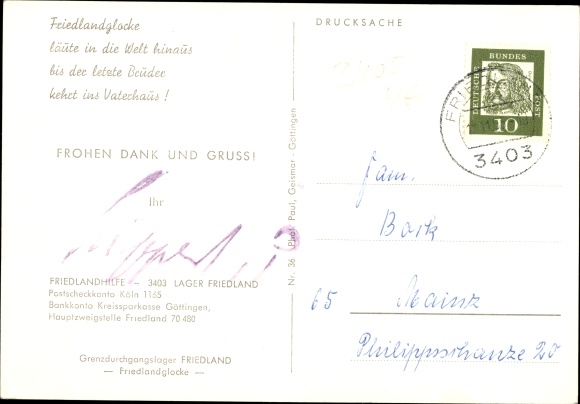 Friedlandglocke
läute in die Welt hinaus
bis der letzte Bruder
kehrt ins Vaterhaus !
FROHEN DANK UND GRUSS!
Ihr
FRIEDLANDHILFE – 3403 LAGER FRIEDLAND
Postscheckkonto Köln 1165
Bankkonto Kreissparkasse Göttingen,
Hauptzweigstelle Friedland 70 480
Grenzdurchgangslager FRIEDLAND
— Friedlandglocke —
Nr. 36 Phot. Paul, Geismar-Göttingen
DRUCKSACHE
DEUTSCHE
BUNDES
POST
10
3403
Fam.
Bork
65 Mainz
Philippsschanze 20